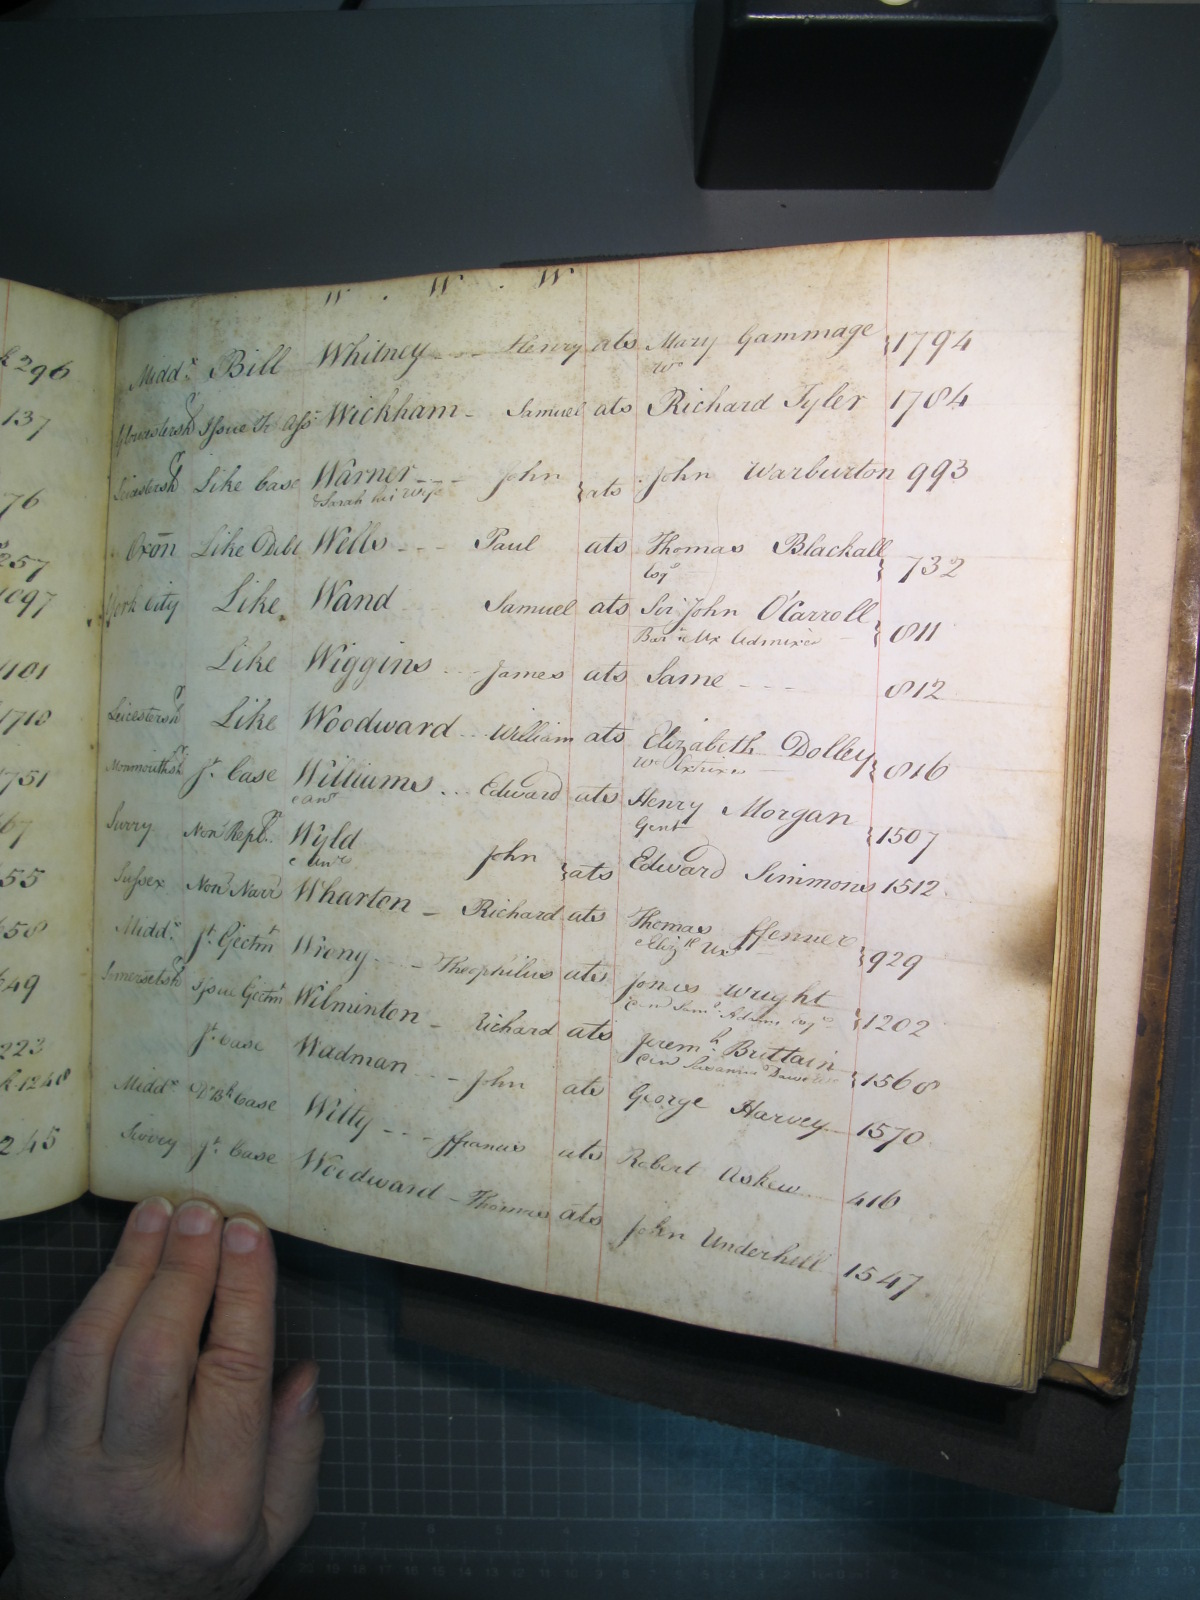 W . W . W
Midd.x Bill Whitney Henry ats Mary Gammage 1794
W.o
Gloucestersh.r Issue Tr. Ass.t Wickham Samuel ats Richard Tyler 1784
Leicestersh.r Like Case Warner John ats John Warburton 993
& Sarah his Wife
Oxōn Like Debt Wells Paul ats Thomas Blackall 732
Esq.r
York City Like Wand Samuel ats Sir John O'Carroll 811
Bar.t & Ux Admix.
Like Wiggins James ats Same 812
Leicestersh.r Like Woodward William ats Elizabeth Dolley 816
W.o Extrix
Monmouthsh.r J.t Case Williams Edward ats Henry Morgan 1507
& an.r Gent
Surry Non Repl.r Wyld John ats Edward Simmons 1512
& an.r
Sussex Non Narr Wharton Richard ats Thomas ffenner 929
& Eliz.th Ux
Midd.x J.t Eject.m Wrong Theophilus ats Jones Wright 1202
Somersetsh.r Issue Eject.m Wilminton Richard ats Jerem.h Brittain 1568
J.t Case Wadman John ats George Harvey 1570
Midd.x Case Witty ffrancis ats Robert Askew 416
Surry J.t Case Woodward Thomas ats John Underhill 1547
296
137
76
257
1097
1101
1710
1751
67
55
58
49
223
1248
245